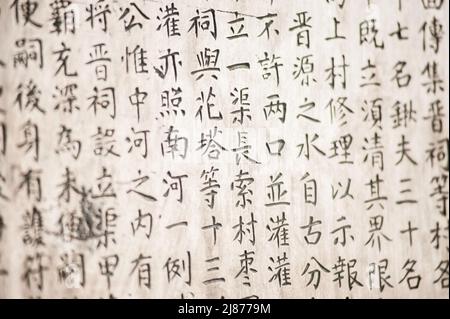 傳集晉祠等村名
十七名鍬夫三十名
既立須清其界限
上村修理以示報
晉源之水自古分
不許两口並灌灌
立一渠長索村枣
祠與花塔等十三
灌亦照南河一例
公惟中河之内有
將晉祠設立渠甲
霸充深為未便嗣
便嗣後身有護符
alamy
Image ID: 2J8779M
www.alamy.com